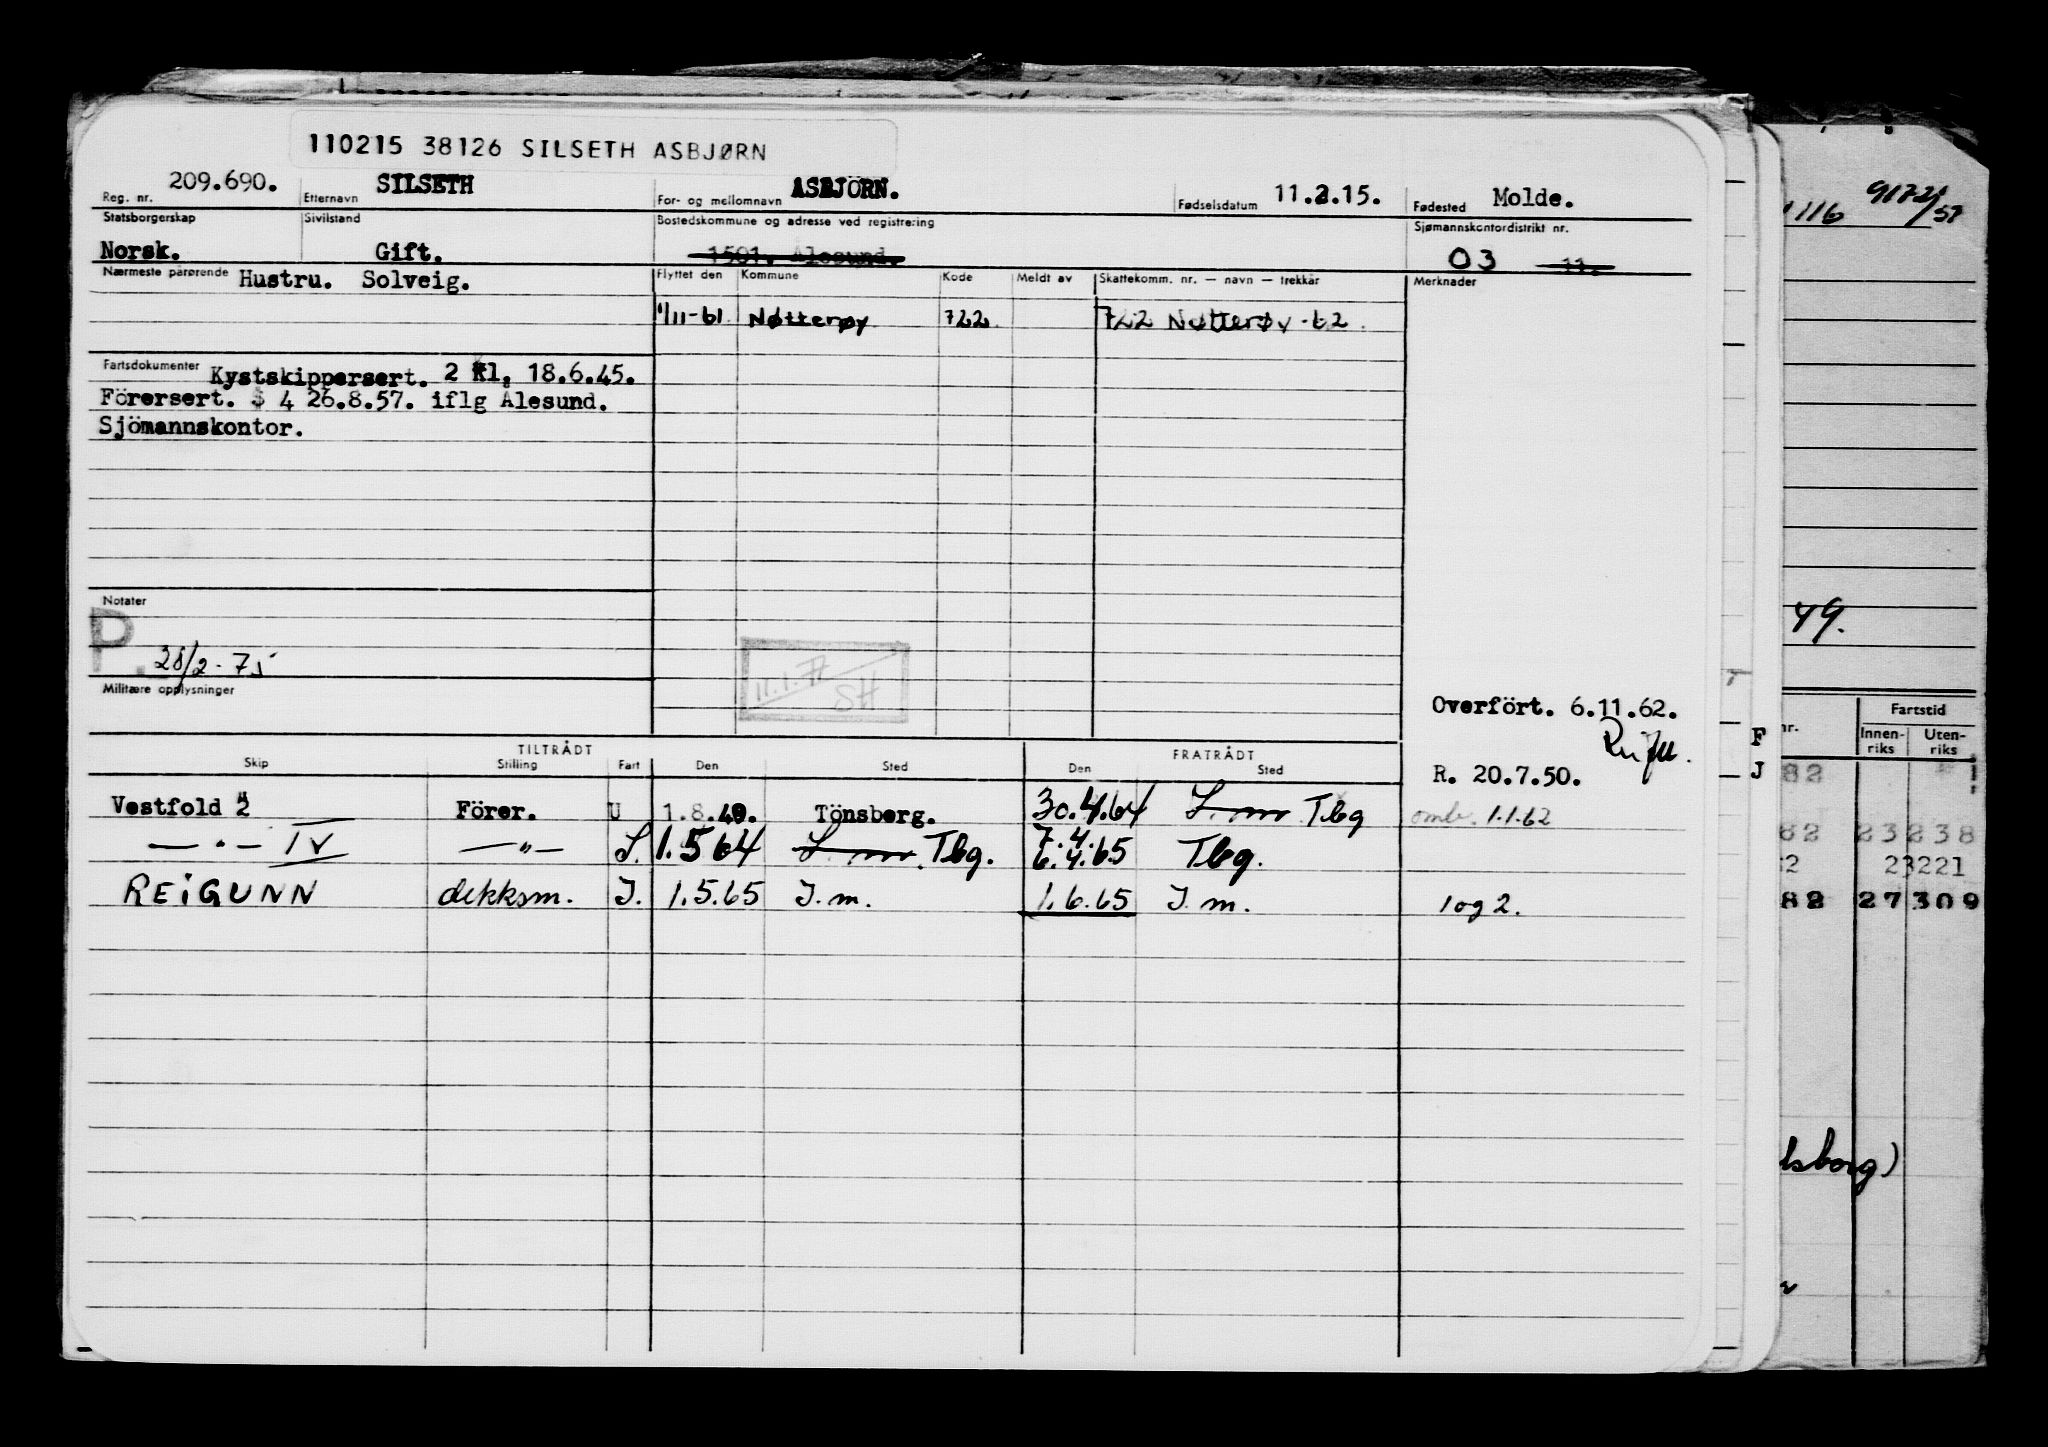 110215 38126 SILSETH ASBJØRN
Reg. nr. 209.690. Etternavn SILSETH For- og mellomnavn ASBJÖRN. Fødselsdatum 11.2.15. Fødested Molde.
Statsborgerskap Sivilstand Bostedskommune og adresse ved registrering Sjømannskontordistrikt nr.
Norsk. Gift. 1501. Alesund. 03 11.
Nærmeste pårørende Hustru. Solveig. Flyttet den Kommune Kode Meldt av Skattekomm. nr. — navn — trekkår Merknader
1/11-61 Nøtterøy 722 722 Nøtterøy -62
Fartsdokumenter Kystskippersert. 2 kl, 18.6.45.
Förersert. § 4 26.8.57. iflg Alesund.
Sjömannskontor.
Notater
P. 28/2-75
11.1.77
SH
Militære opplysninger
Overfört. 6.11.62.
R. 20.7.50.
TILTRÅDT FRATRÅDT
Skip Stilling Fart Den Sted Den Sted
Vestfold 2 Förer. U 1.8.49. Tönsberg. 30.4.64 Tbg omb. 1.1.62
— " — IV — " — 1.5 64 Tbg. 7.4. 6.4.65 Tbg.
REIGUNN dekksm. I. 1.5.65 I.m. 1.6.65 I.m. 1 og 2.
F
J
116 9172/57
49.
nr. Fartstid
Innen-riks Uten-riks
82
82 23 238
2 23221
82 27 309
lsborg)